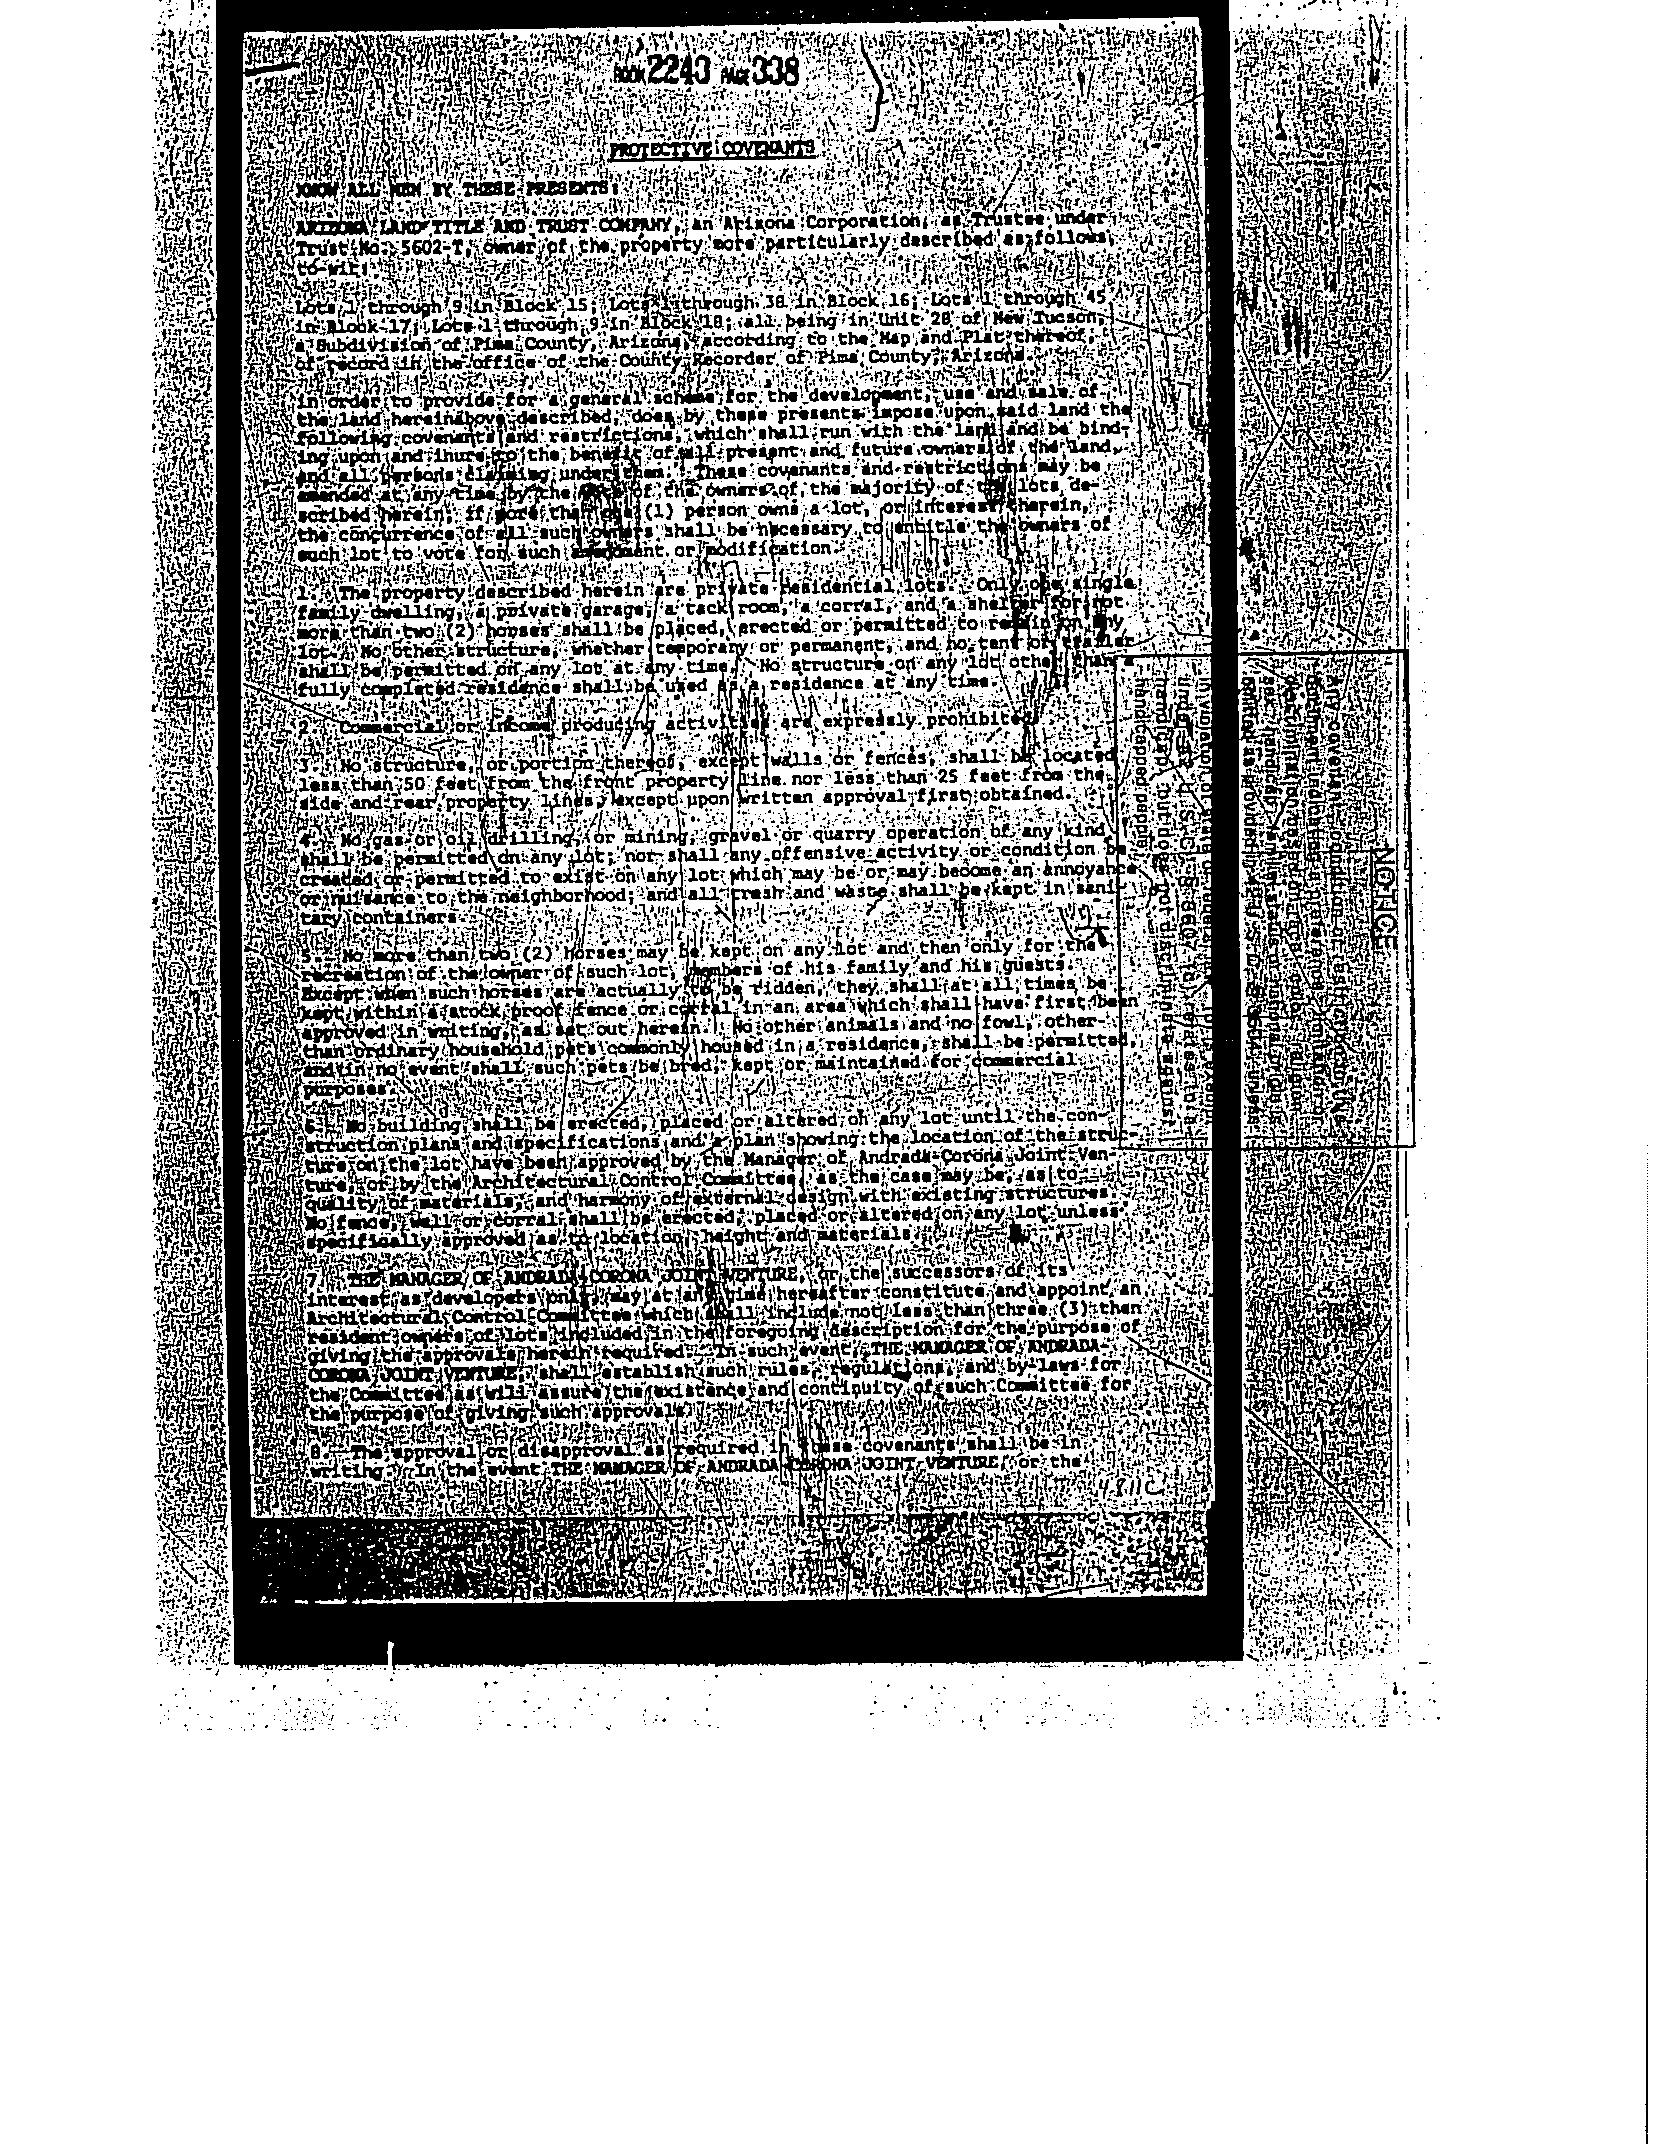 BOOK 2243 PAGE 338
PROTECTIVE COVENANTS
KNOW ALL MEN BY THESE PRESENTS:
ARIZONA LAND TITLE AND TRUST COMPANY, an Arizona Corporation, as Trustee under
Trust No. 5602-T, owner of the property more particularly described as follows,
to-wit:
Lots 1 through 9 in Block 15; Lots 1 through 38 in Block 16; Lots 1 through 45
in Block 17; Lots 1 through 9 in Block 18; all being in Unit 28 of New Tucson,
a Subdivision of Pima County, Arizona, according to the Map and Plat thereof,
of record in the office of the County Recorder of Pima County, Arizona.
in order to provide for a general scheme for the development, use and sale of
the land hereinabove described, does by these presents impose upon said land the
following covenants and restrictions, which shall run with the land and be bind-
ing upon and inure to the benefit of all present and future owners of the land,
and all persons claiming under them. These covenants and restrictions may be
amended at any time by the of the owners of the majority of the lots de-
scribed herein; if more than one (1) person owns a lot, or interest therein,
the concurrence of all such owners shall be necessary to entitle the owners of
such lot to vote for such amendment or modification.
1. The property described herein are private residential lots. Only one single
family dwelling, a private garage, a tack room, a corral, and a shelter for not
more than two (2) horses shall be placed, erected or permitted to remain on any
lot. No other structure, whether temporary or permanent, and no tent or trailer
shall be permitted on any lot at any time. No structure on any lot other than a
fully completed residence shall be used as a residence at any time.
2. Commercial or income producing activities are expressly prohibited.
3. No structure, or portion thereof, except walls or fences, shall be located
less than 50 feet from the front property line nor less than 25 feet from the
side and rear property lines, except upon written approval first obtained.
4. No gas or oil drilling, or mining, gravel or quarry operation of any kind
shall be permitted on any lot; nor shall any offensive activity or condition be
created or permitted to exist on any lot which may be or may become an annoyance
or nuisance to the neighborhood; and all trash and waste shall be kept in sani-
tary containers.
5. No more than two (2) horses may be kept on any lot and then only for the
recreation of the owner of such lot, members of his family and his guests.
Except when such horses are actually to be ridden, they shall at all times be
kept within a stock proof fence or corral in an area which shall have first been
approved in writing, as set out herein. No other animals and no fowl, other
than ordinary household pets commonly housed in a residence, shall be permitted,
and in no event shall such pets be bred, kept or maintained for commercial
purposes.
6. No building shall be erected, placed or altered on any lot until the con-
struction plans and specifications and a plan showing the location of the struc-
ture on the lot have been approved by the Manager of Andrada-Corona Joint Ven-
ture, or by the Architectural Control Committee, as the case may be, as to
quality of materials, and harmony of external design with existing structures.
No fence, wall or corral shall be erected, placed or altered on any lot unless
specifically approved as to location, height and materials.
7. THE MANAGER OF ANDRADA-CORONA JOINT VENTURE, or the successors of its
interest as developers only, may at any time hereafter constitute and appoint an
Architectural Control Committee which shall include not less than three (3) then
resident owners of lots included in the foregoing description for the purpose of
giving the approvals herein required. In such event, THE MANAGER OF ANDRADA-
CORONA JOINT VENTURE, shall establish such rules, regulations, and by-laws for
the Committee as will assure the existence and continuity of such Committee for
the purpose of giving such approvals.
8. The approval or disapproval as required in these covenants shall be in
writing. In the event THE MANAGER OF ANDRADA-CORONA JOINT VENTURE, or the
NOTICE
handicapped people.